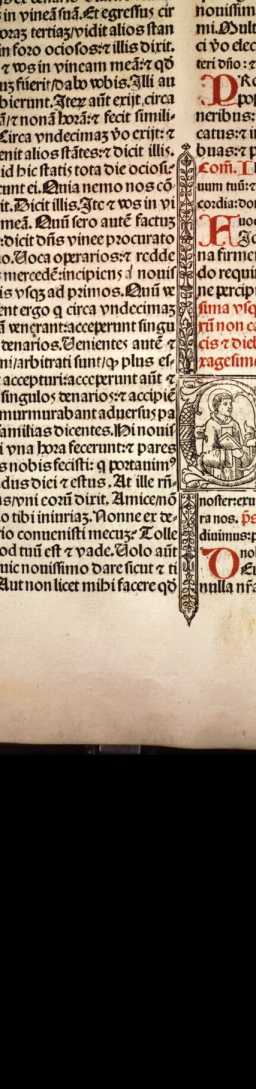 in vineā suā. Et egressus cir
horaȝ tertiaȝ vidit alios stan
in foro ociosos: ⁊ illis dixit.
⁊ vos in vineam meā: ⁊ qð
us fuerit / dabo vobis. Illi aū
abierunt. Iteȝ aūt exijt circa
⁊ nonā horā: ⁊ fecit simili⸗
Circa vndecimaȝ vo exijt: ⁊
venit alios stātes: ⁊ dicit illis.
id hic statis tota die ociosi⸗
cunt ei. Quia nemo nos cō
it. Dicit illis. Ite ⁊ vos in vi
meā. Quū sero autē factuȝ
: dicit dn̄s vinee procurato
o. Voca operarios: ⁊ redde
mercedē: incipiens a nouis
is vsqȝ ad primos. Quū ve
ent ergo q circa vndecimaȝ
ā venerant: acceperunt singu
denarios. Venientes autē ⁊
mi / arbitrati sunt / qꝫ plus es⸗
accepturi: acceperunt aūt ⁊
singulos denarios: ⁊ accipiē
murmurabant aduersus pa
familias dicentes. Hi nouis
i vna hora fecerunt: ⁊ pares
s nobis fecisti: q portauim⁹
dus diei ⁊ estus. At ille rn̄⸗
s / vni eorū dixit. Amice / nō
o tibi iniuriaȝ. Nonne ex de⸗
rio conuenisti mecuȝ? Tolle
od tuū est ⁊ vade. Volo aūt
uic nouissimo dare sicut ⁊ ti
Aut non licet mihi facere qð
nouissim
mi. Mult
ci vo elec
teri dn̄o: ⁊
pop
neribus:
catus: ⁊ in
buas: ⁊ p
Com̄.
uum tuū: ⁊
cordia: do
na firme
do requir
ne percipi
sima vsq
rū non c
cis ⁊ dieb
xagesim
noster: exu
ra nos. ps
diuimus: p
nulla nr̄a